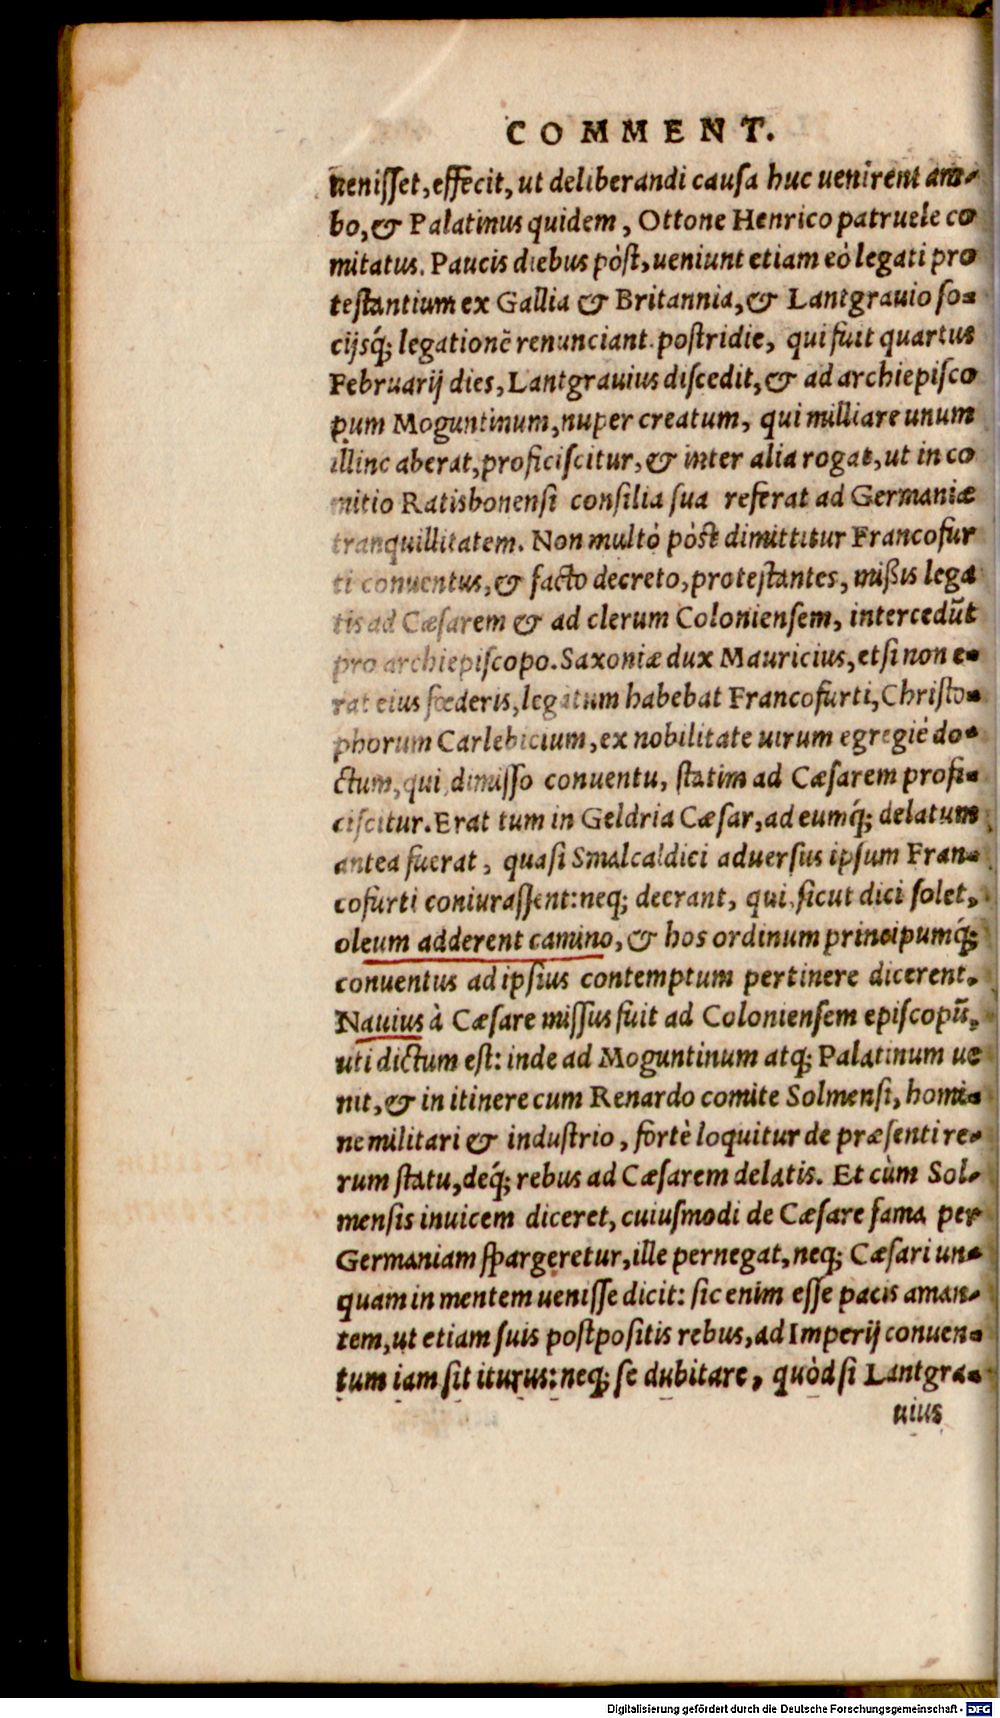 COMMENT.
uenisset, effecit, ut deliberandi causa huc uenirent am-
bo, & Palatinus quidem, Ottone Henrico patruele co
mitatus. Paucis diebus pòst, ueniunt etiam eò legati pro
testantium ex Gallia & Britannia, & Lantgrauio so-
cijsq́; legationē renunciant. postridie, qui fuit quartus
Februarij dies, Lantgrauius discedit, & ad archiepisco
pum Moguntinum, nuper creatum, qui milliare unum
illinc aberat, proficiscitur, & inter alia rogat, ut in co
mitio Ratisbonensi consilia sua referat ad Germaniæ
tranquillitatem. Non multò pòst dimittitur Francofur
ti conuentus, & facto decreto, protestantes, mißis lega
tis ad Cæsarem & ad clerum Coloniensem, intercedūt
pro archiepiscopo. Saxoniæ dux Mauricius, etsi non e-
rat eius fœderis, legatum habebat Francofurti, Christo-
phorum Carlebicium, ex nobilitate uirum egregiè do-
ctum, qui, dimisso conuentu, statim ad Cæsarem profi-
ciscitur. Erat tum in Geldria Cæsar, ad eumq́; delatum
antea fuerat, quasi Smalcaldici aduersus ipsum Fran-
cofurti coniurassent: neq; deerant, qui, sicut dici solet,
oleum adderent camino, & hos ordinum principumq́;
conuentus ad ipsius contemptum pertinere dicerent.
Nauius à Cæsare missus fuit ad Coloniensem episcopū,
uti dictum est: inde ad Moguntinum atq; Palatinum ue
nit, & in itinere cum Renardo comite Solmensi, homi-
ne militari & industrio, fortè loquitur de præsenti re-
rum statu, deq́; rebus ad Cæsarem delatis. Et cùm Sol-
mensis inuicem diceret, cuiusmodi de Cæsare fama per
Germaniam spargeretur, ille pernegat, neq; Cæsari un-
quam in mentem uenisse dicit: sic enim esse pacis aman-
tem, ut etiam suis postpositis rebus, ad Imperij conuen-
tum iam sit iturus: neq; se dubitare, quòd si Lantgra-
uius
Digitalisierung gefördert durch die Deutsche Forschungsgemeinschaft - DFG